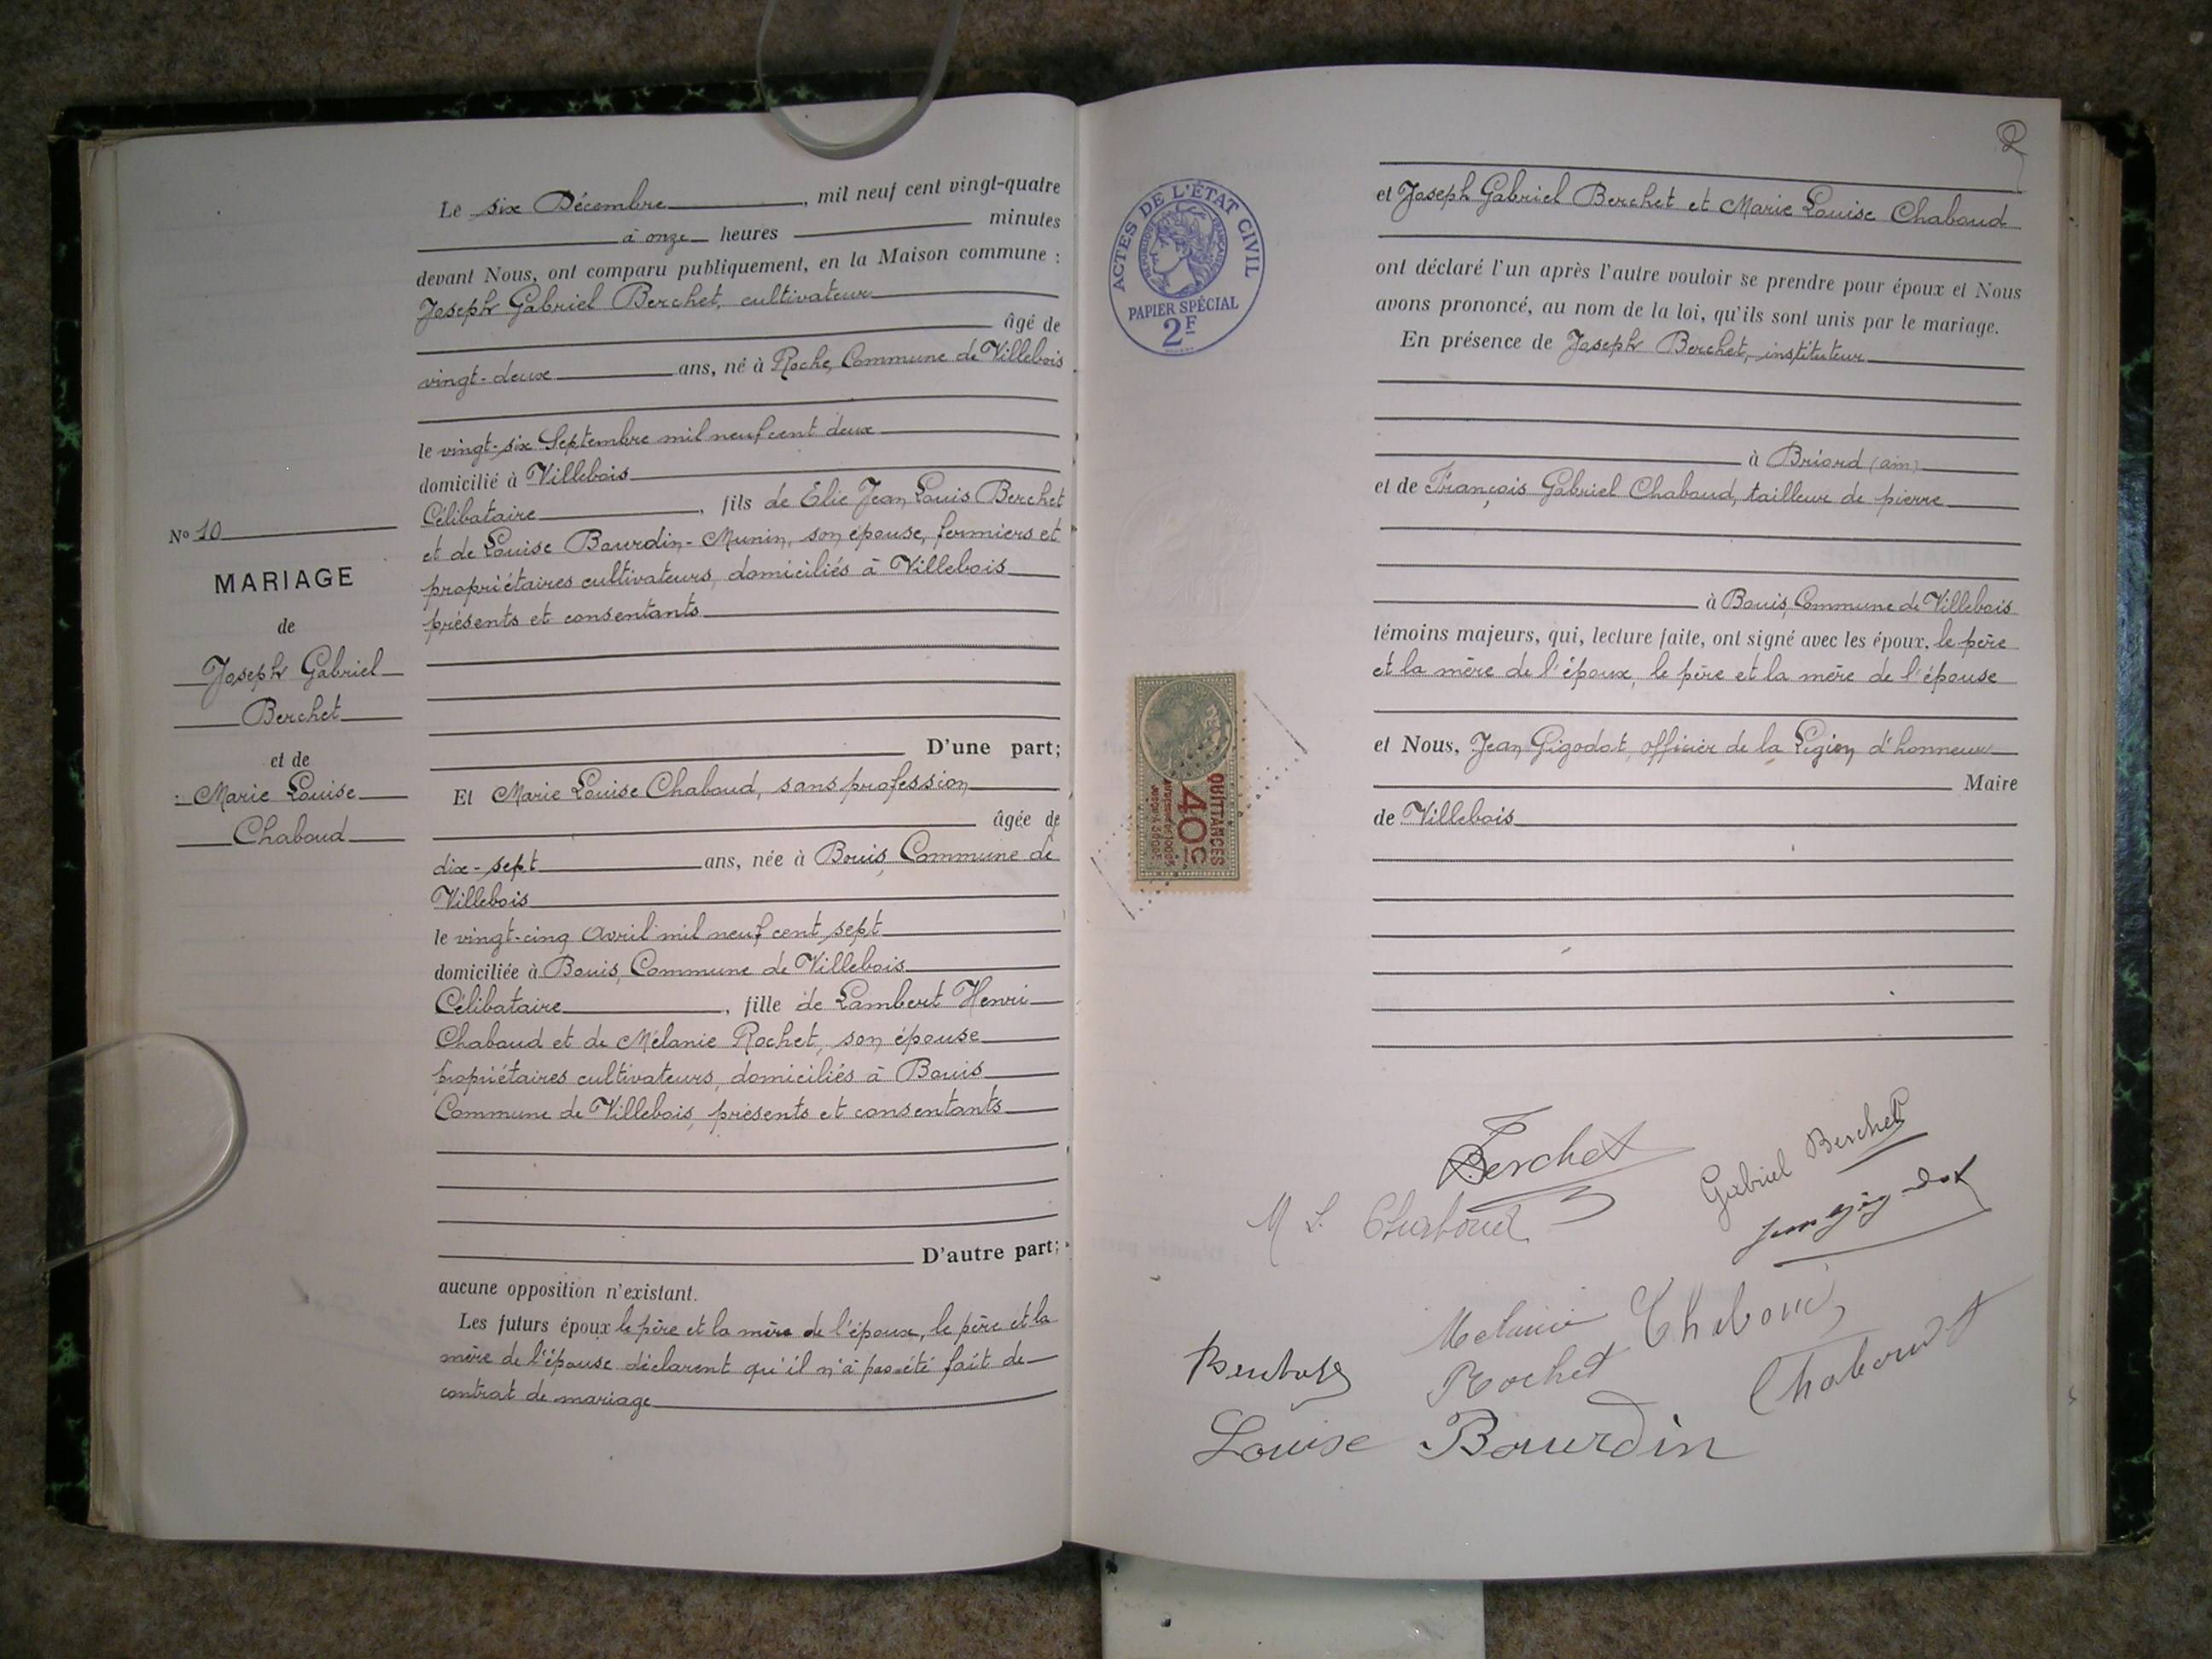 Le six Décembre, mil neuf cent vingt-quatre
à onze heures minutes
devant Nous, ont comparu publiquement, en la Maison commune :
Joseph Gabriel Berchet, cultivateur
âgé de
vingt-deux ans, né à Roche, Commune de Villebois
le vingt-six Septembre mil neuf cent deux
domicilié à Villebois
Célibataire, fils de Elie Jean Louis Berchet
et de Louise Bourdin-Munin, son épouse, fermiers et
propriétaires cultivateurs, domiciliés à Villebois
présents et consentants
No 10
MARIAGE
de
Joseph Gabriel
Berchet
et de
Marie Louise
Chaboud
D'une part;
Et Marie Louise Chaboud, sans profession
âgée de
dix-sept ans, née à Bouis, Commune de
Villebois
le vingt-cinq Avril mil neuf cent sept
domiciliée à Bouis, Commune de Villebois
Célibataire, fille de Lambert Henri
Chaboud et de Mélanie Rochet, son épouse
propriétaires cultivateurs, domiciliés à Bouis
Commune de Villebois, présents et consentants
D'autre part;
aucune opposition n'existant.
Les futurs époux le père et la mère de l'époux, le père et la
mère de l'épouse déclarent qu'il n'a pas été fait de
contrat de mariage
2
ACTES DE L'ÉTAT CIVIL
RÉPUBLIQUE FRANÇAISE
PAPIER SPÉCIAL
2F
et Joseph Gabriel Berchet et Marie Louise Chaboud
ont déclaré l'un après l'autre vouloir se prendre pour époux et Nous
avons prononcé, au nom de la loi, qu'ils sont unis par le mariage.
En présence de Joseph Berchet, instituteur
à Briord (ain)
et de François Gabriel Chaboud, tailleur de pierre
à Bouis, Commune de Villebois
témoins majeurs, qui, lecture faite, ont signé avec les époux, le père
et la mère de l'époux, le père et la mère de l'épouse
et Nous, Jean Gigodot, officier de la Légion d'honneur
Maire
de Villebois
QUITTANCES
40c
Berchet
Gabriel Berchet
M L Chaboud
Jean Gigodot
Melanie Chaboud
Rochet
Chaboud
Louise Bourdin